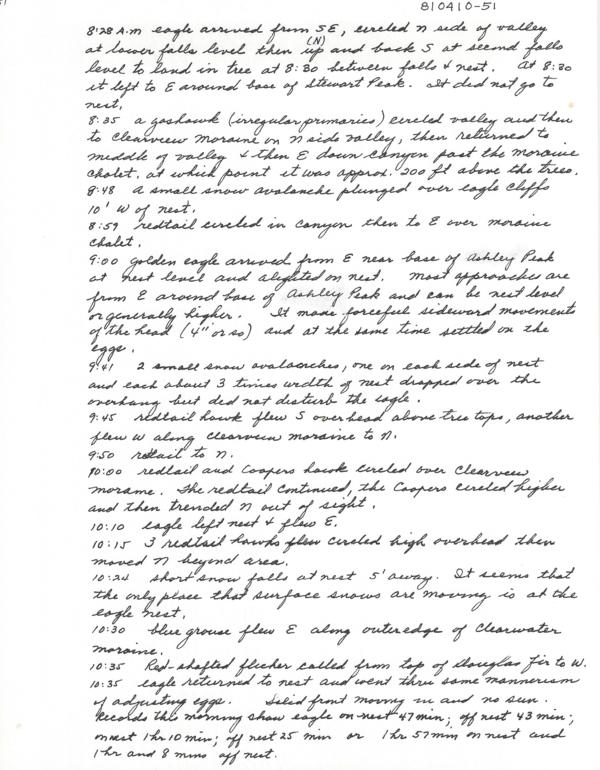 810410-51
8:28 A.M eagle arrived from SE, circled N side of valley
(N)
at lower falls level then up and back S at second falls
level to land in tree at 8:30 between falls & nest. At 8:30
it left to E around base of Stewart Peak. It did not go to
nest.
8:35 a goshawk (irregular primaries) circled valley and then
to Clearview Moraine on N side valley, then returned to
middle of valley & then E down canyon past the moraine
chalet, at which point it was approx. 200 ft above the trees.
8:48 a small snow avalanche plunged over eagle cliffs
10' W of nest.
8:59 redtail circled in canyon then to E over moraine
chalet.
9:00 golden eagle arrived from E near base of Ashley Peak
at nest level and alighted on nest. Most approaches are
from E around base of Ashley Peak and can be nest level
or generally higher. It made forceful sideward movements
of the head (4" or so) and at the same time settled on the
eggs.
9:41 2 small snow avalanches, one on each side of nest
and each about 3 times width of nest dropped over the
overhang but did not disturb the eagle.
9:45 redtail hawk flew S overhead above tree tops, another
flew W along Clearview moraine to N.
9:50 redtail to N.
10:00 redtail and Coopers hawk circled over Clearview
morame. The redtail continued, the Coopers circled higher
and then trended N out of sight.
10:10 eagle left nest & flew E.
10:15 3 redtail hawks flew circled high overhead then
moved N beyond area.
10:24 short snow falls at nest 5' away. It seems that
the only place that surface snows are moving is at the
eagle nest.
10:30 blue grouse flew E along outer edge of Clearwater
moraine.
10:35 Red-shafted flicker called from top of Douglas fir to W.
10:35 eagle returned to nest and went thru same mannerism
of adjusting eggs. Solid front moving in and no sun.
Records this morning show eagle on nest 47 min; off nest 43 min;
on nest 1 hr 10 min; off nest 25 min or 1 hr 57 min on nest and
1 hr and 8 mins off nest.